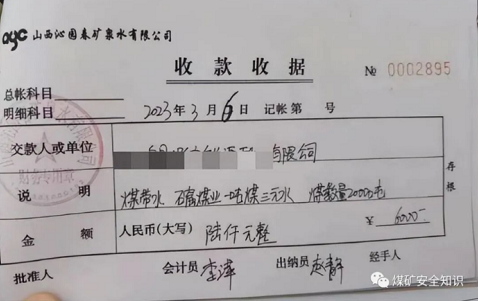 ayc 山西沁园春矿泉水有限公司
收款收据
№ 0002895
总帐科目
明细科目
2023年3月6日 记帐第 号
交款人或单位 有限公司
说明 煤带水 石膏煤业一吨煤三元水 煤数量2000吨
金额 人民币(大写) 陆仟元整 ¥ 6000
存根
财务专用章
批准人 会计员 李泽 出纳员 赵静 经手人
煤矿安全知识